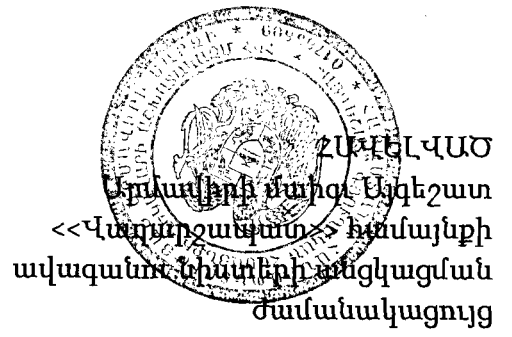 ՀԱՎԵԼՎԱԾ
Արմավիրի մարզի Այգեշատ
<<Վաղարշապատ>> համայնքի
ավագանու նիստերի անցկացման
ժամանակացույց